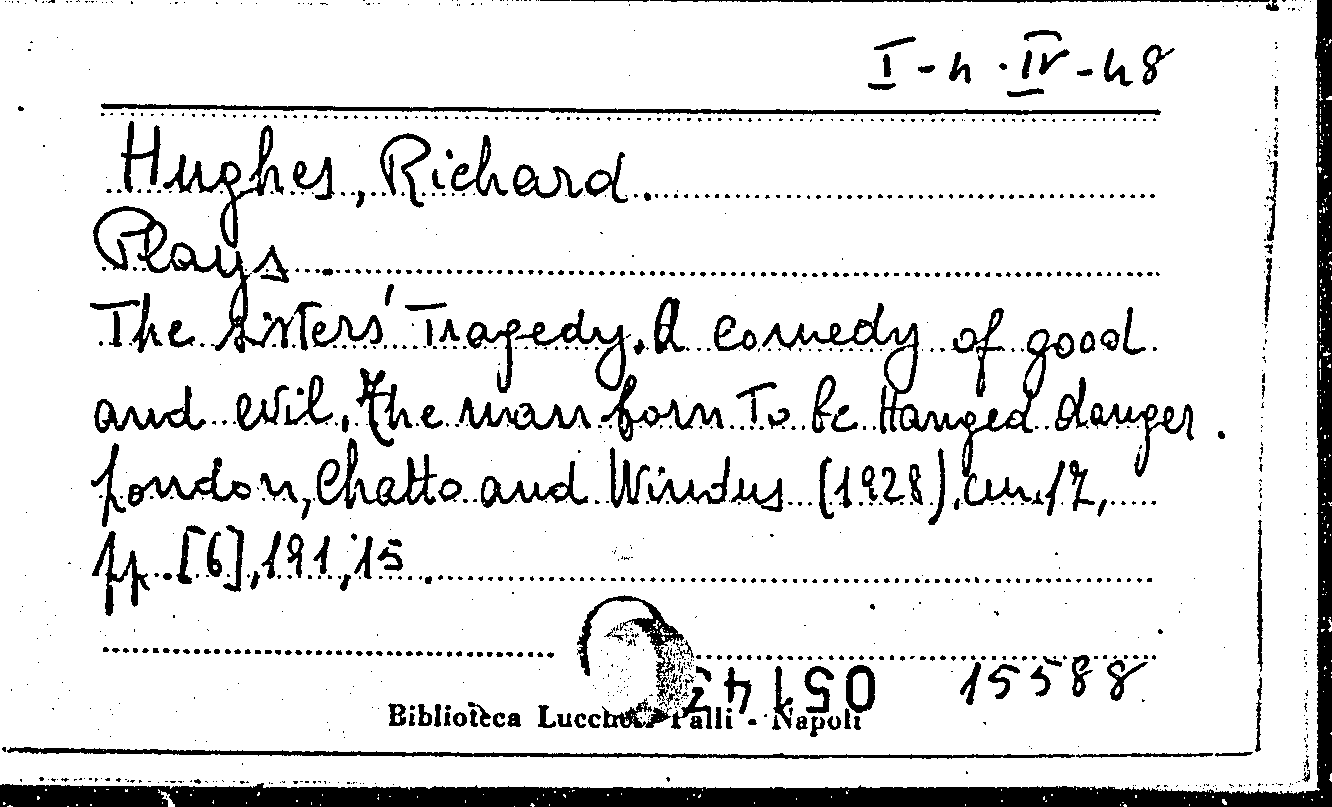 I-4.IV-48
Hughes, Richard.
Plays.
The sisters' Tragedy. A comedy of good
and evil. The man born To be Hanged danger.
London, Chatto and Windus (1928), cm. 17,
pp. [6], 191, 15.
15588
Biblioteca Palli - Napoli